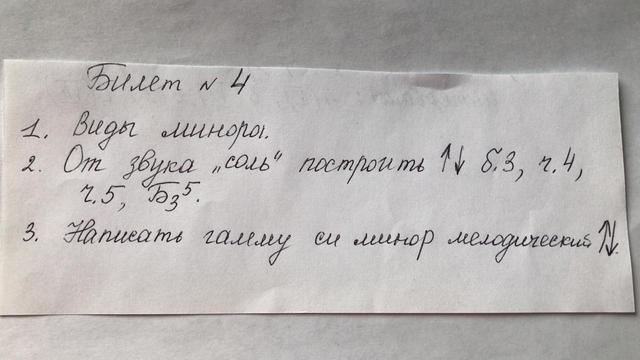 Билет N 4
1. Виды минора.
2. От звука „соль“ построить ↑↓ б.3, ч.4,
ч.5, Б₃⁵.
3. Написать гамму си минор мелодический ↑↓.